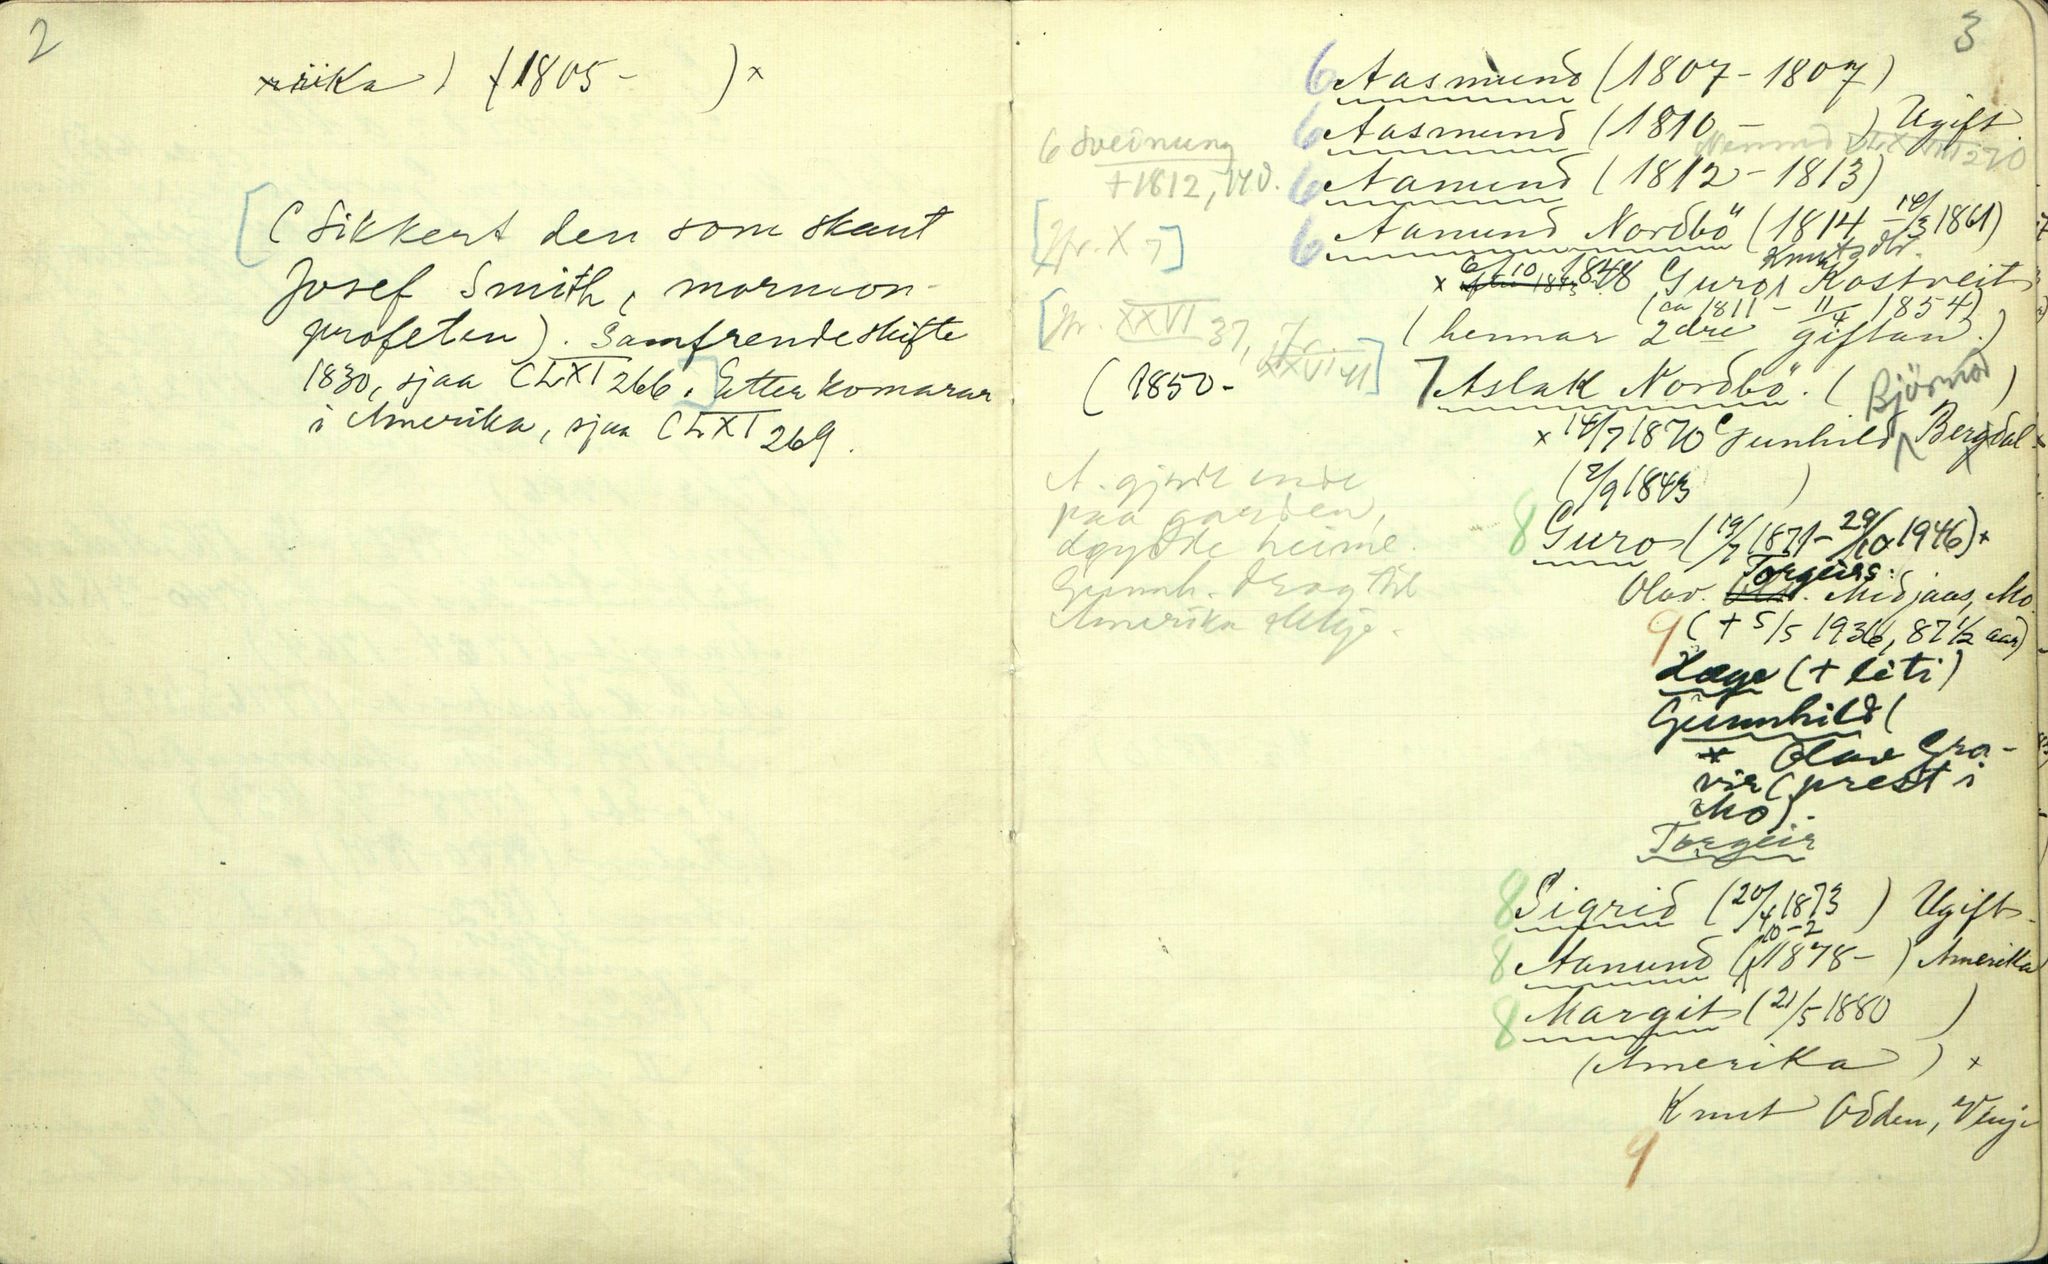 2
rika) (1805- )x
(Sikkert den som skaut
Josef Smith, mormon-
profeten). Samfrendeskifte
1830, sjaa CLXI 266. Etterkomarar
i Amerika, sjaa CLXI 269.
3
6 Aasmund (1807-1807)
6 Aasmund (1810- ) Ugift.
Nemnd 270
6 Sveinung
+1812, 14 v.
6 Aamund (1812-1813)
6 Aanund Nordbö (1814, 14/3 1861)
[Jfr. X 7]
Knutsdtr.
x 6/10 1848 Guro Kostveit
(ca 1811 - 11/4 1854)
(hennar 2dre giftan.)
[Jfr. XXVI 37, Jfr.
XXVI 41]
(1850-
7 Aslak Nordbö. (Björnsd )
x 14/7 1870 Gunhild Bergdal
(2/9 1843 )
A. gjorde ende
paa garden,
döydde heime.
Gunnh. drog til
Amerika
8 Guro (19/7 1871-29/10 1946) x
Torgeirs.
Olav. Midjaas, Mo
(+ 5/5 1936, 87 1/2 aar)
9
Hæge (+ liti)
Gunnhild (
x Olav Gra-
vir (prest i
Mo).
Torgeir
8 Sigrid (20/4 1873 ) Ugift.
10-2
8 Aanund (1878- ) Amerika
8 Margit (21/5 1880 )
(Amerika) x
Knut Odden, Vinje
9